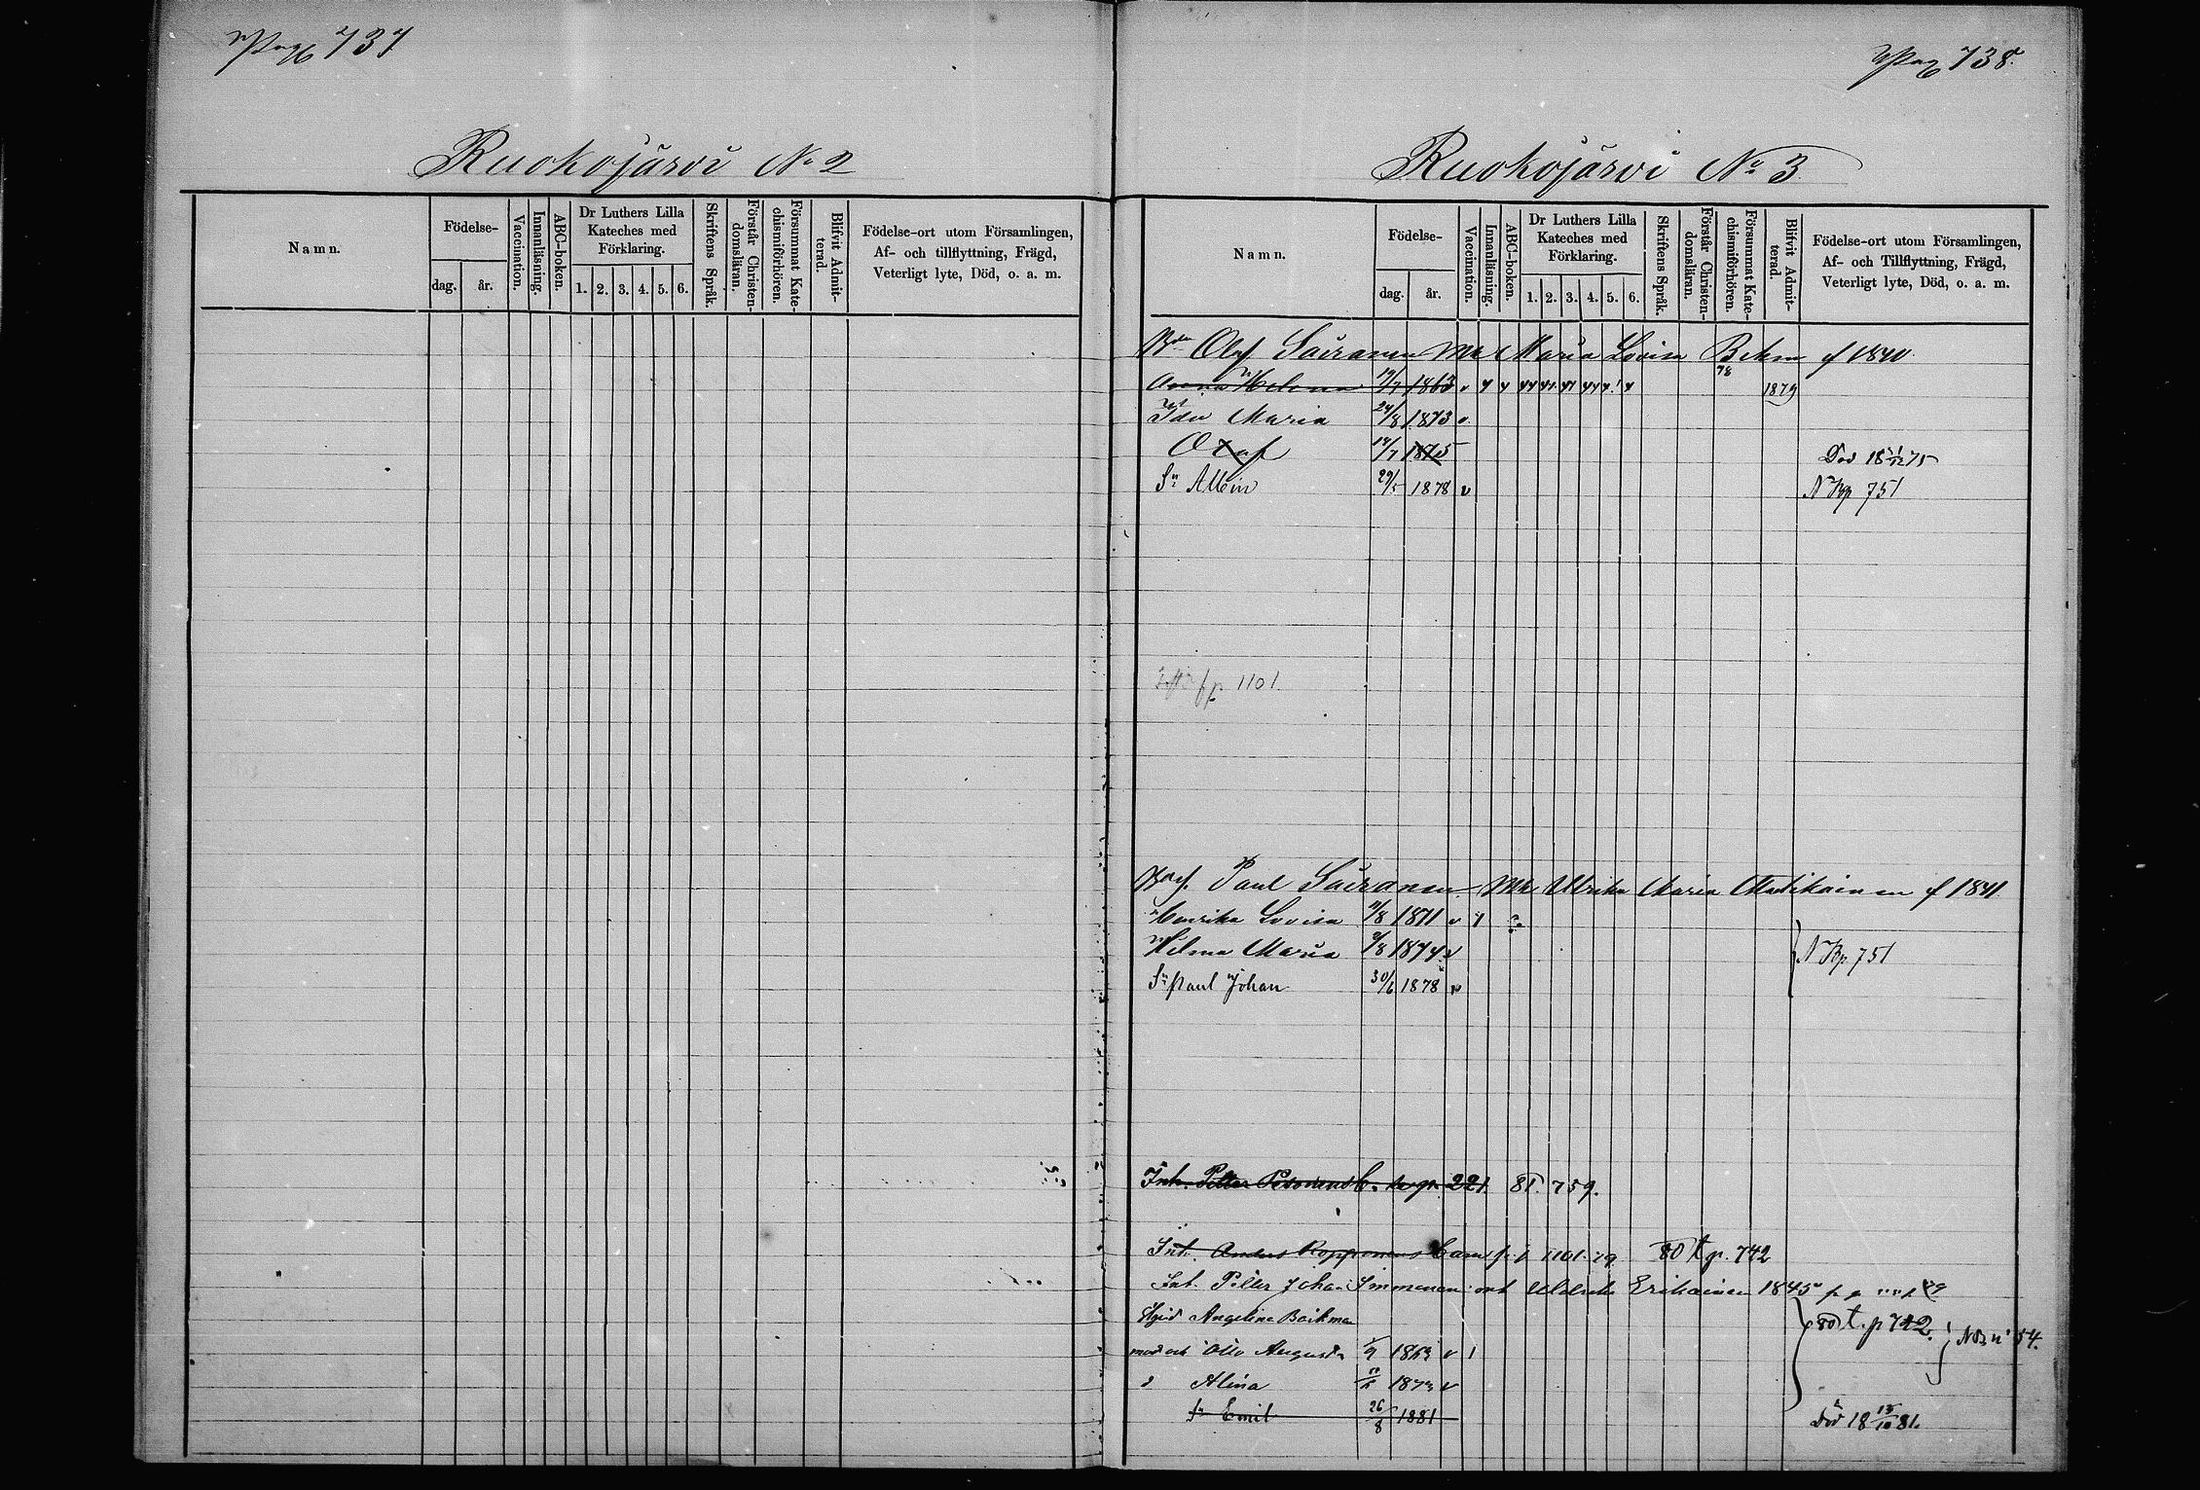 Pag 737
Ruokojärvi No 2
Namn.
Födelse-
dag.
år.
Vaccination.
Innanläsning.
ABC-boken.
Dr Luthers Lilla
Kateches med
Förklaring.
1. 2. 3. 4. 5. 6.
Skriftens Språk.
Förstår Christen-
domsläran.
Försummat Kate-
chismiförhören.
Blifvit Admit-
terad.
Födelse-ort utom Församlingen,
Af- och tillflyttning, Frägd,
Veterligt lyte, Död, o. a. m.
Pag 738.
Ruokojärvi No 3
Namn.
Födelse-
dag.
år.
Vaccination.
Innanläsning.
ABC-boken.
Dr Luthers Lilla
Kateches med
Förklaring.
1. 2. 3. 4. 5. 6.
Skriftens Språk.
Förstår Christen-
domsläran.
Försummat Kate-
chismiförhören.
Blifvit Admit-
terad.
Födelse-ort utom Församlingen,
Af- och Tillflyttning, Frägd,
Veterligt lyte, Död, o. a. m.
Olof Sairanen Maria Lovisa f 1840
Anna Helena 1863 78 1879
Ida Maria 24/8 1873
Olof 1875 Död 75
Sn Albin 29/5 1878 v N Kp 751
p 1101.
Paul Sairanen Ulrika Maria Matikainen f 1841
Henrika Lovisa 1871 v
Hilma Maria 1874 v N Kp 751
Sn Paul Johan 30/6 1878 v
Inh. Petter 221. 81. 759.
Inh. Anders Kopponens barn 1101. 79 80 t p. 742
Inh. Petter Johan Immonen Ulrika Erikainen 1845
Angelina Backman 80 t. p 742. 54.
Otto August 1
Alina v
Sn Emil 26/8 1881 Död 18 13/10 81.